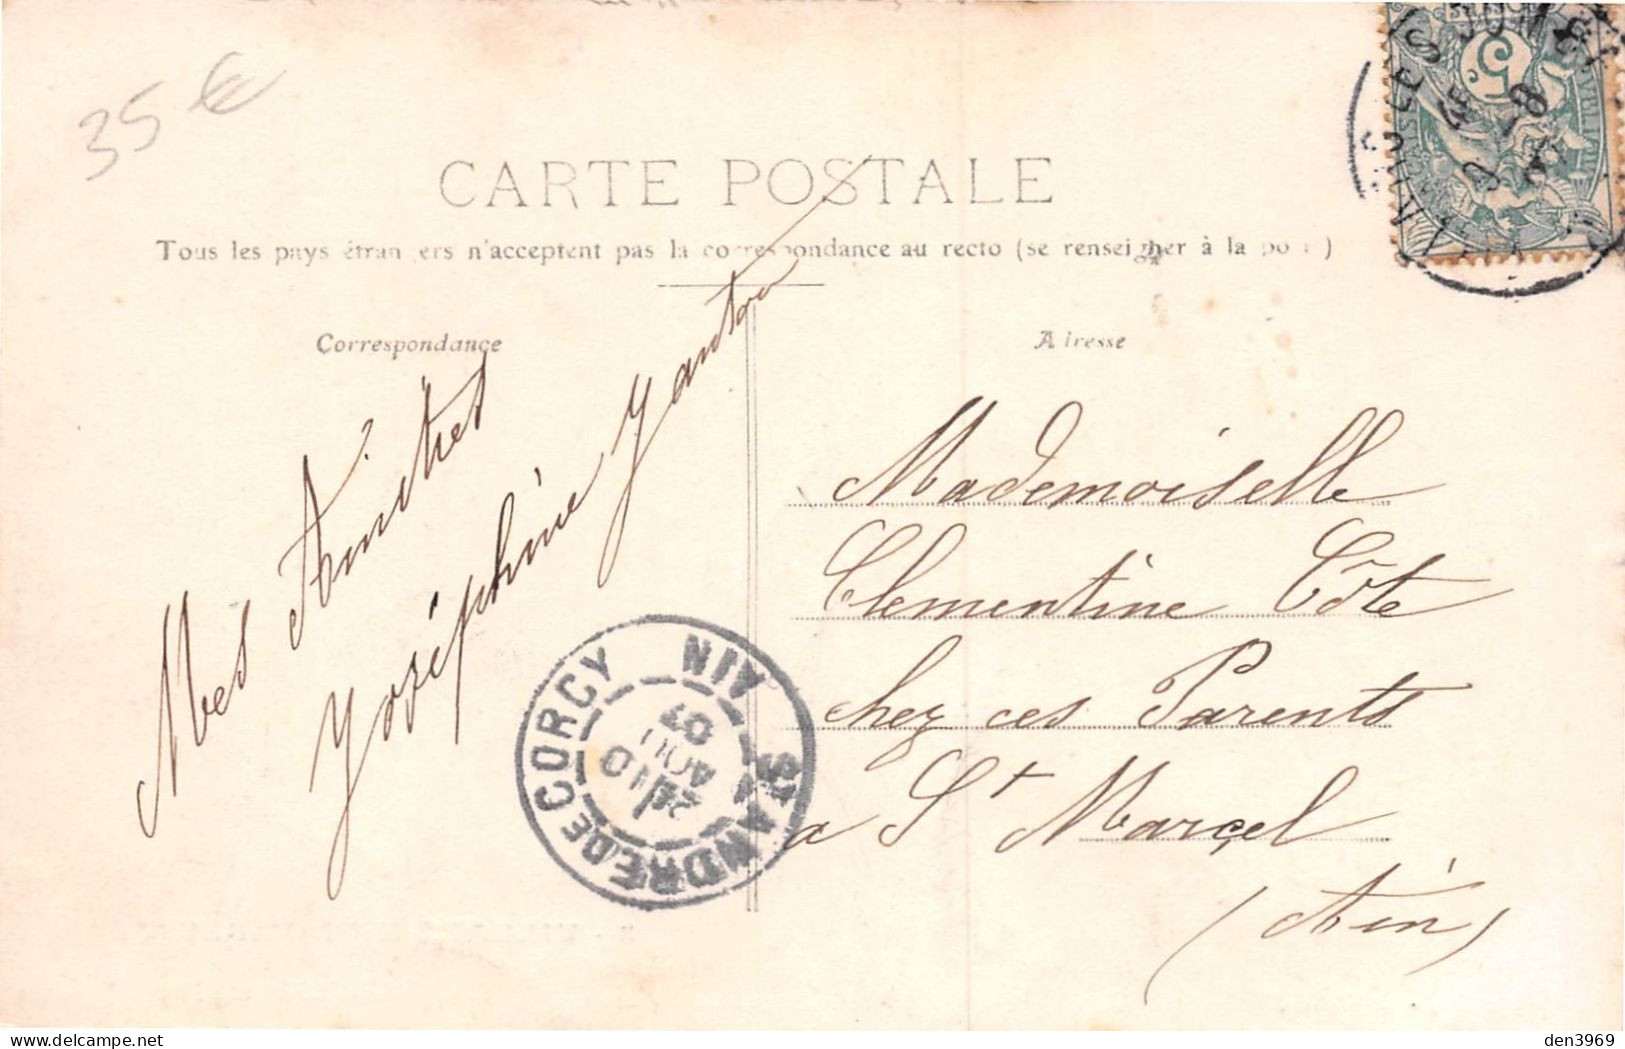 35 €
CARTE POSTALE
Tous les pays étrangers n'acceptent pas la correspondance au recto (se renseigner à la poste)
Correspondance
Adresse
Mes Amitiés
Yoséphine Yanton
Mademoiselle
Clementine Côte
chez ces Parents
a St Marcel
(Ain)
ST ANDRE DE CORCY AIN
AOUT
07
5
den3969